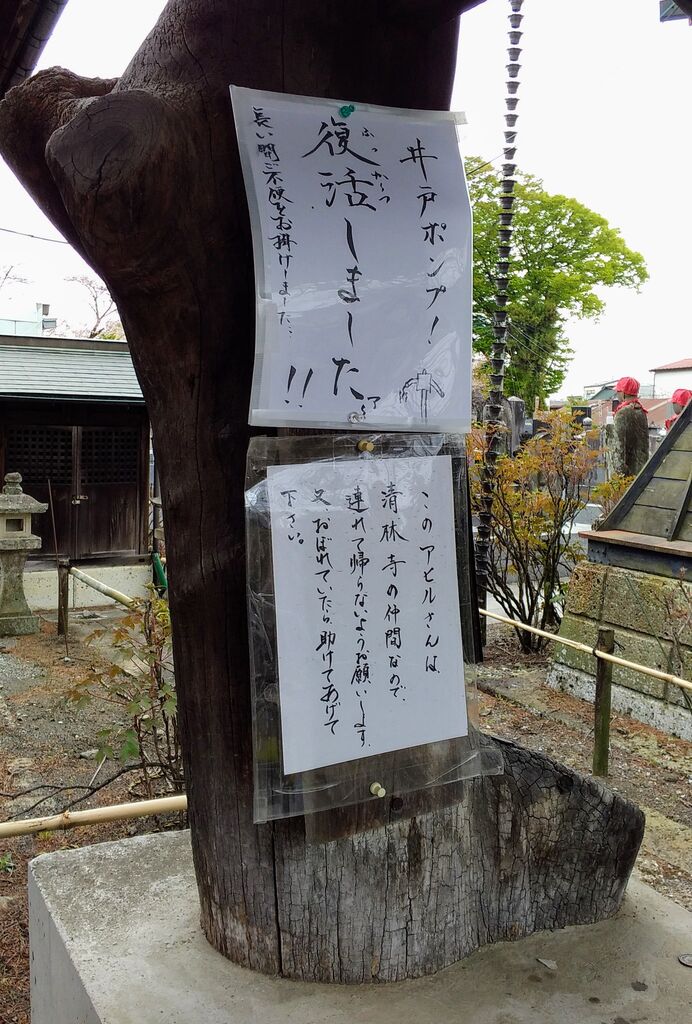 井戸ポンプ!
復活しました
ふっかつ
!!
長い間ご不便をお掛けしました…
このアヒルさんは、
清林寺の仲間なので、
連れて帰らないようお願いします。
又、おぼれていたら助けてあげて
下さい。